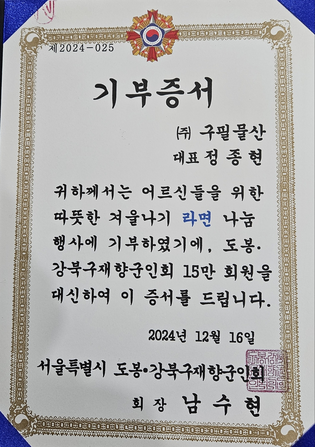 제2024-025
기부증서
㈜ 구필물산
대표 정종현
귀하께서는 어르신들을 위한
따뜻한 겨울나기 라면 나눔
행사에 기부하였기에, 도봉·
강북구재향군인회 15만 회원을
대신하여 이 증서를 드립니다.
2024년 12월 16일
서울특별시 도봉·강북구재향군인회
회장 남수현